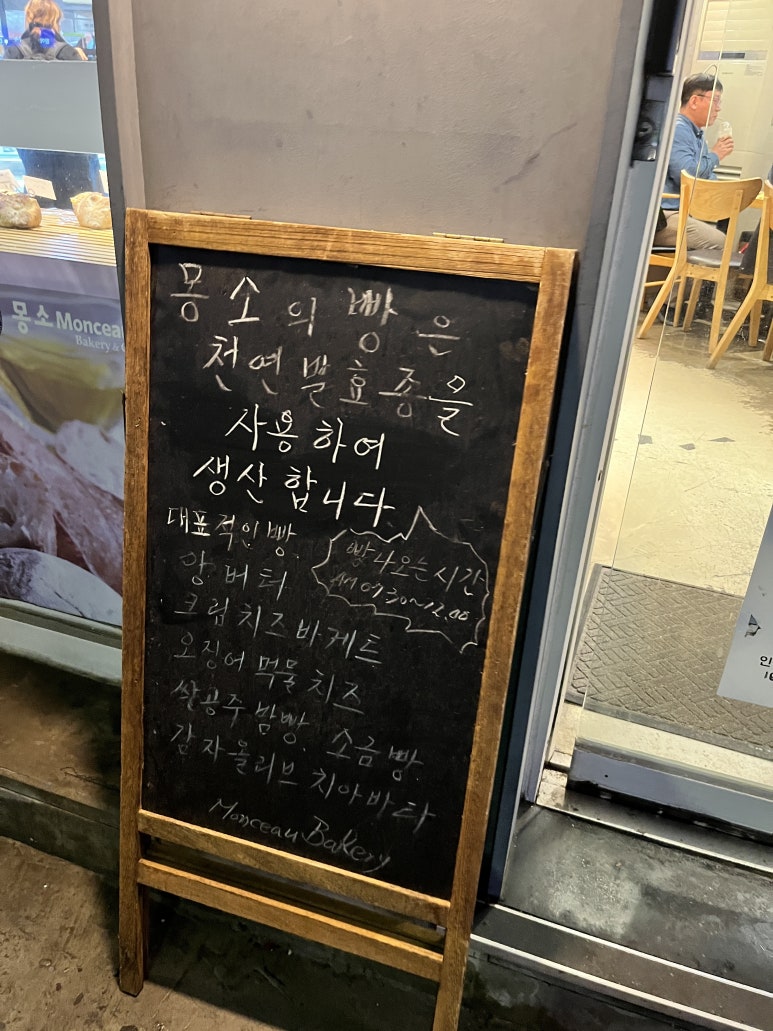 몽소 Moncea
Bakery &
몽소의 빵은
천연발효종을
사용하여
생산합니다.
대표적인 빵.
빵 나오는 시간
AM 07:30~12.00
앙버터
크림치즈바게트
오징어먹물치즈
쌀공주밤빵. 소금빵.
감자올리브치아바타
Monceau Bakery
인